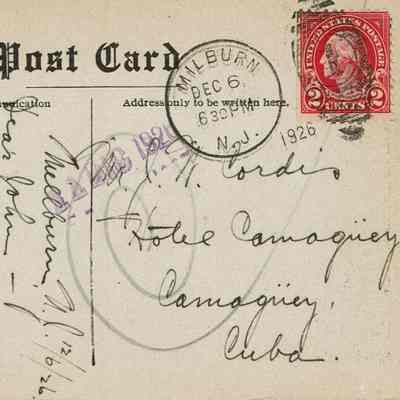 Post Card
Address only to be written here.
MILBURN
DEC 6
630 PM
N.J.
1926
UNITED STATES POSTAGE
2 CENTS 2
Millburn, N.J. 12/6/26
Dear John —
J. W. Cordis
Hotel Camagüey
Camagüey,
Cuba.